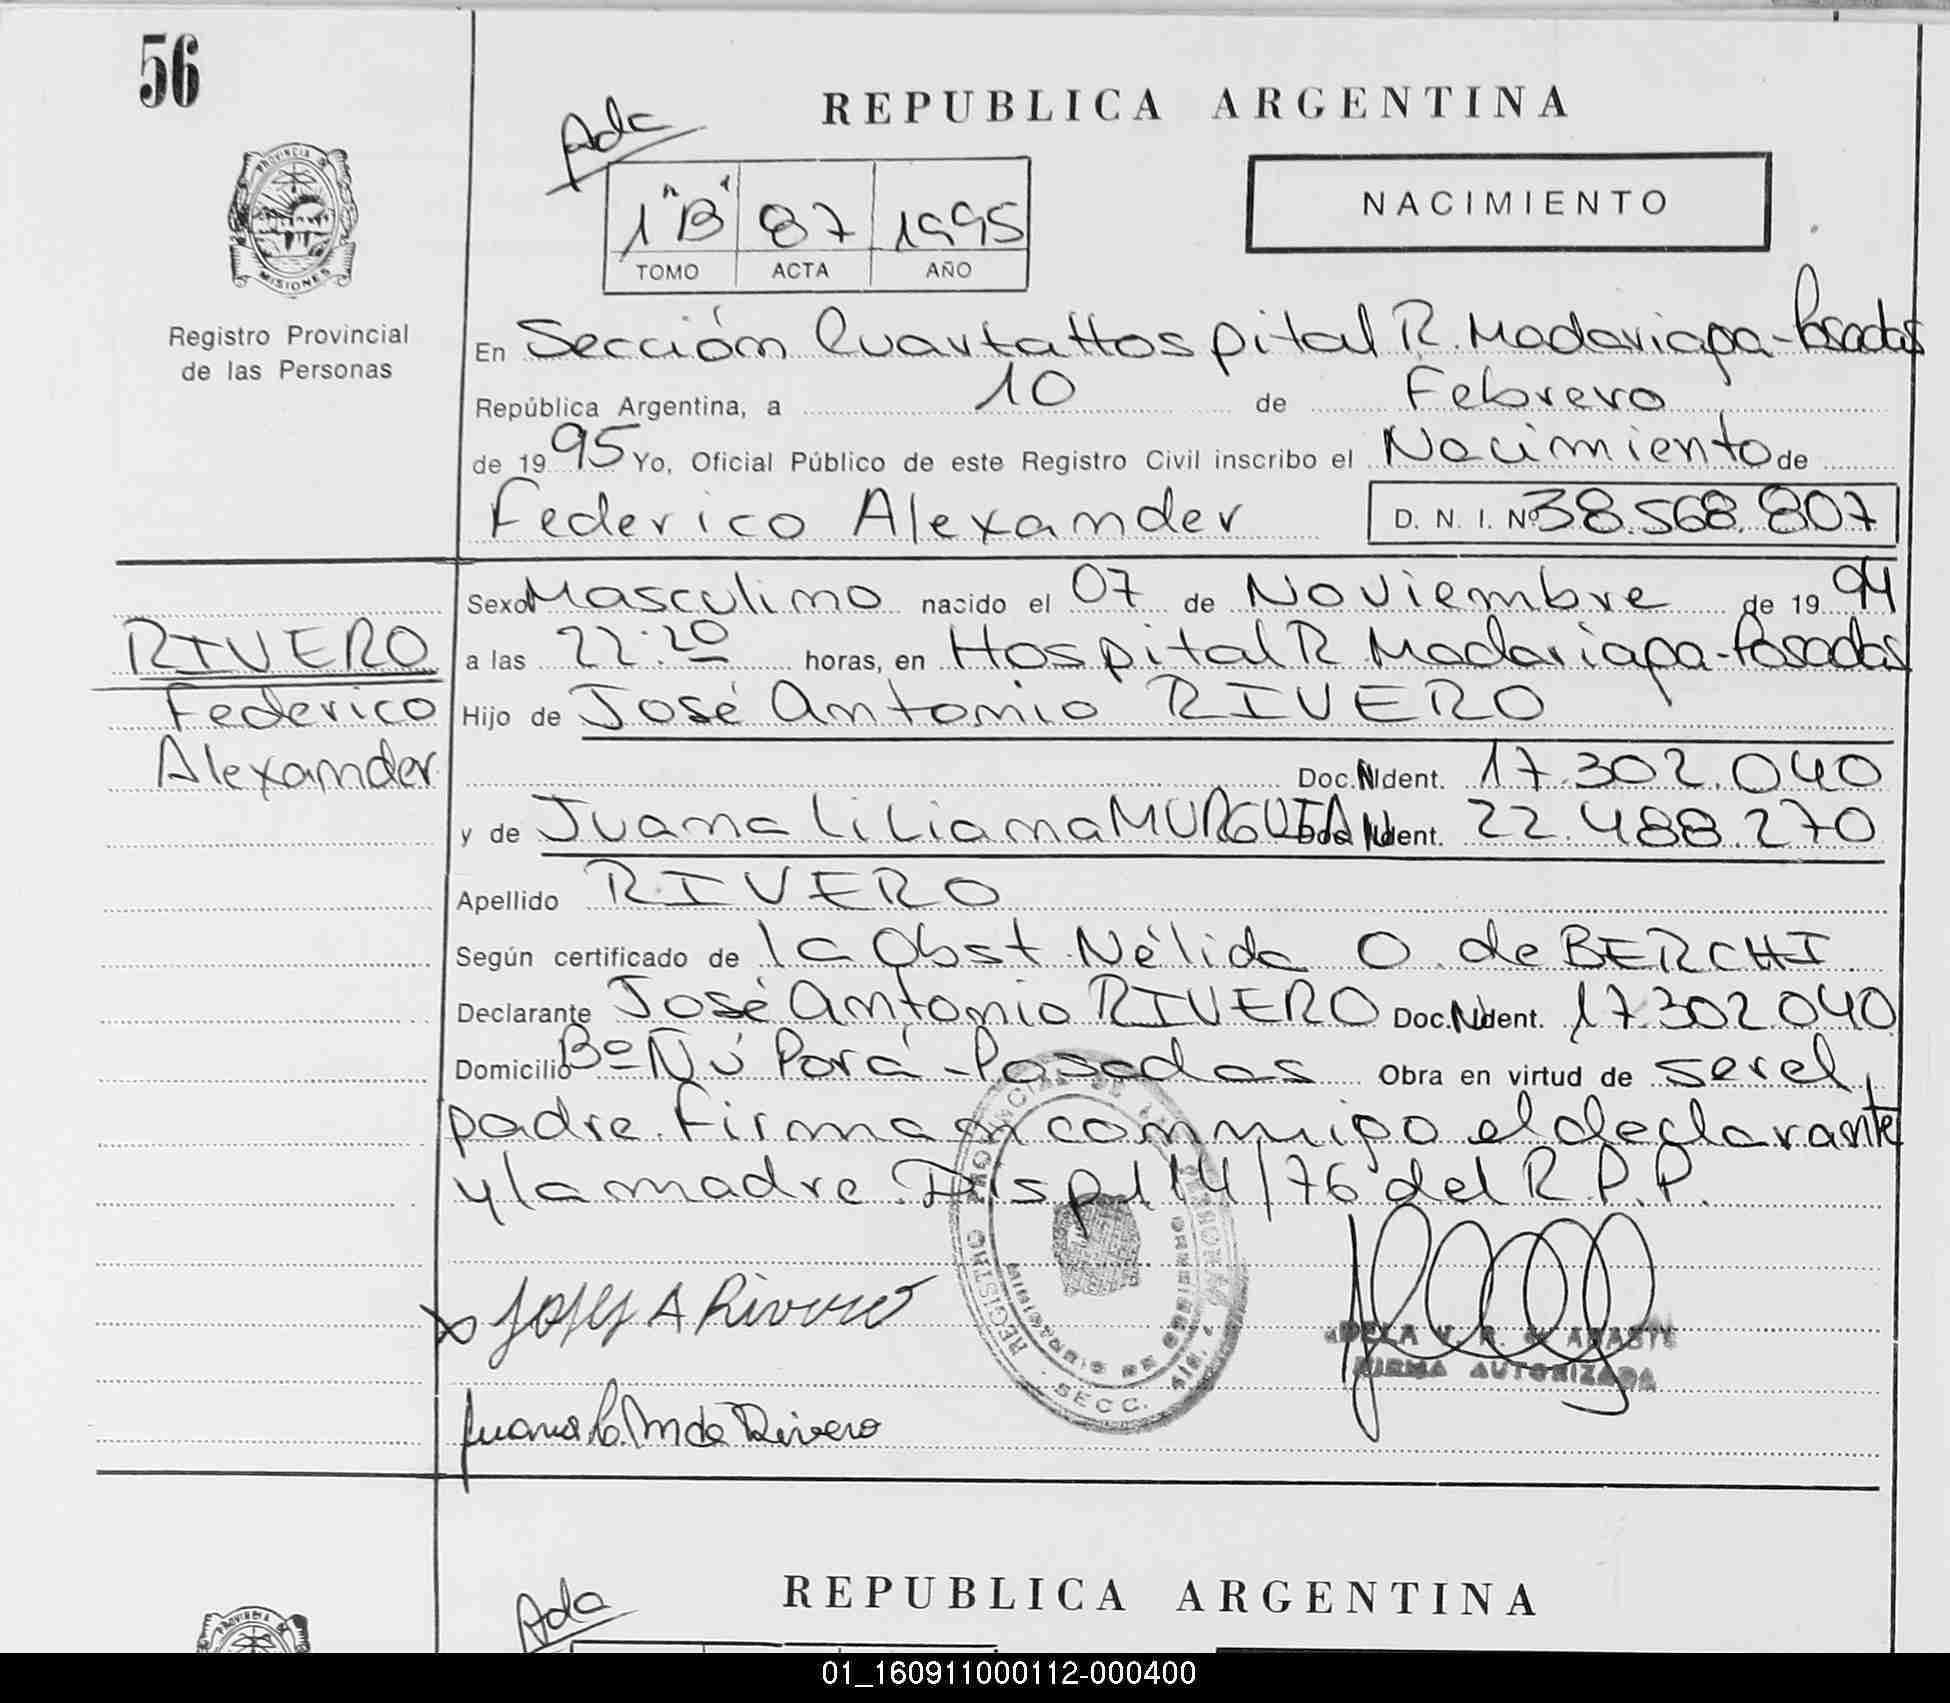 56
REPUBLICA ARGENTINA
Ada
PROVINCIA DE
MISIONES
1 "B" 87 1995
TOMO ACTA AÑO
NACIMIENTO
Registro Provincial
de las Personas
En Sección Cuarta Hospital R. Madariaga - Posadas
República Argentina, a 10 de Febrero
de 1995 Yo, Oficial Público de este Registro Civil inscribo el Nacimiento de
Federico Alexander D. N. I. Nº 38.568.807
Sexo Masculino nacido el 07 de Noviembre de 1994
a las 22:20 horas, en Hospital R. Madariaga - Posadas
RIVERO
Federico
Alexander
Hijo de José Antonio RIVERO
Doc. N Ident. 17.302.040
y de Juana Liliana MURGUIA Doc. N Ident. 22.488.270
Apellido RIVERO
Según certificado de la Obst. Nélida O. de BERCHI
Declarante José Antonio RIVERO Doc. N Ident. 17.302.040
Domicilio Bº Ñú Porá - Posadas Obra en virtud de ser el
padre. Firman conmigo el declarante
y la madre Disp. 114/76 del R.P.P.
José A Rivero
Juana L. M de Rivero
REGISTRO PROVINCIAL DE LAS PERSONAS
MINISTERIO DE GOBIERNO
SECC. 4ta.
FIRMA AUTORIZADA
REPUBLICA ARGENTINA
Ada
PROVINCIA DE
01_160911000112-000400